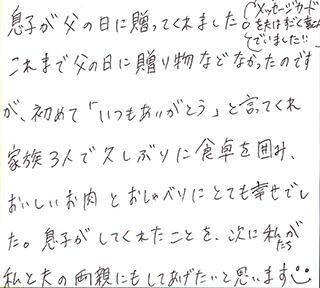 息子が父の日に贈ってくれました。
(メッセージカード
を夫はすごく喜ん
でいました!!)
これまで父の日に贈り物などなかったのです
が、初めて「いつもありがとう」と言ってくれ
家族3人で久しぶりに食卓を囲み、
おいしいお肉とおしゃべりにとても幸せでし
た。息子がしてくれたことを、次に私たちが
私と夫の両親にもしてあげたいと思います